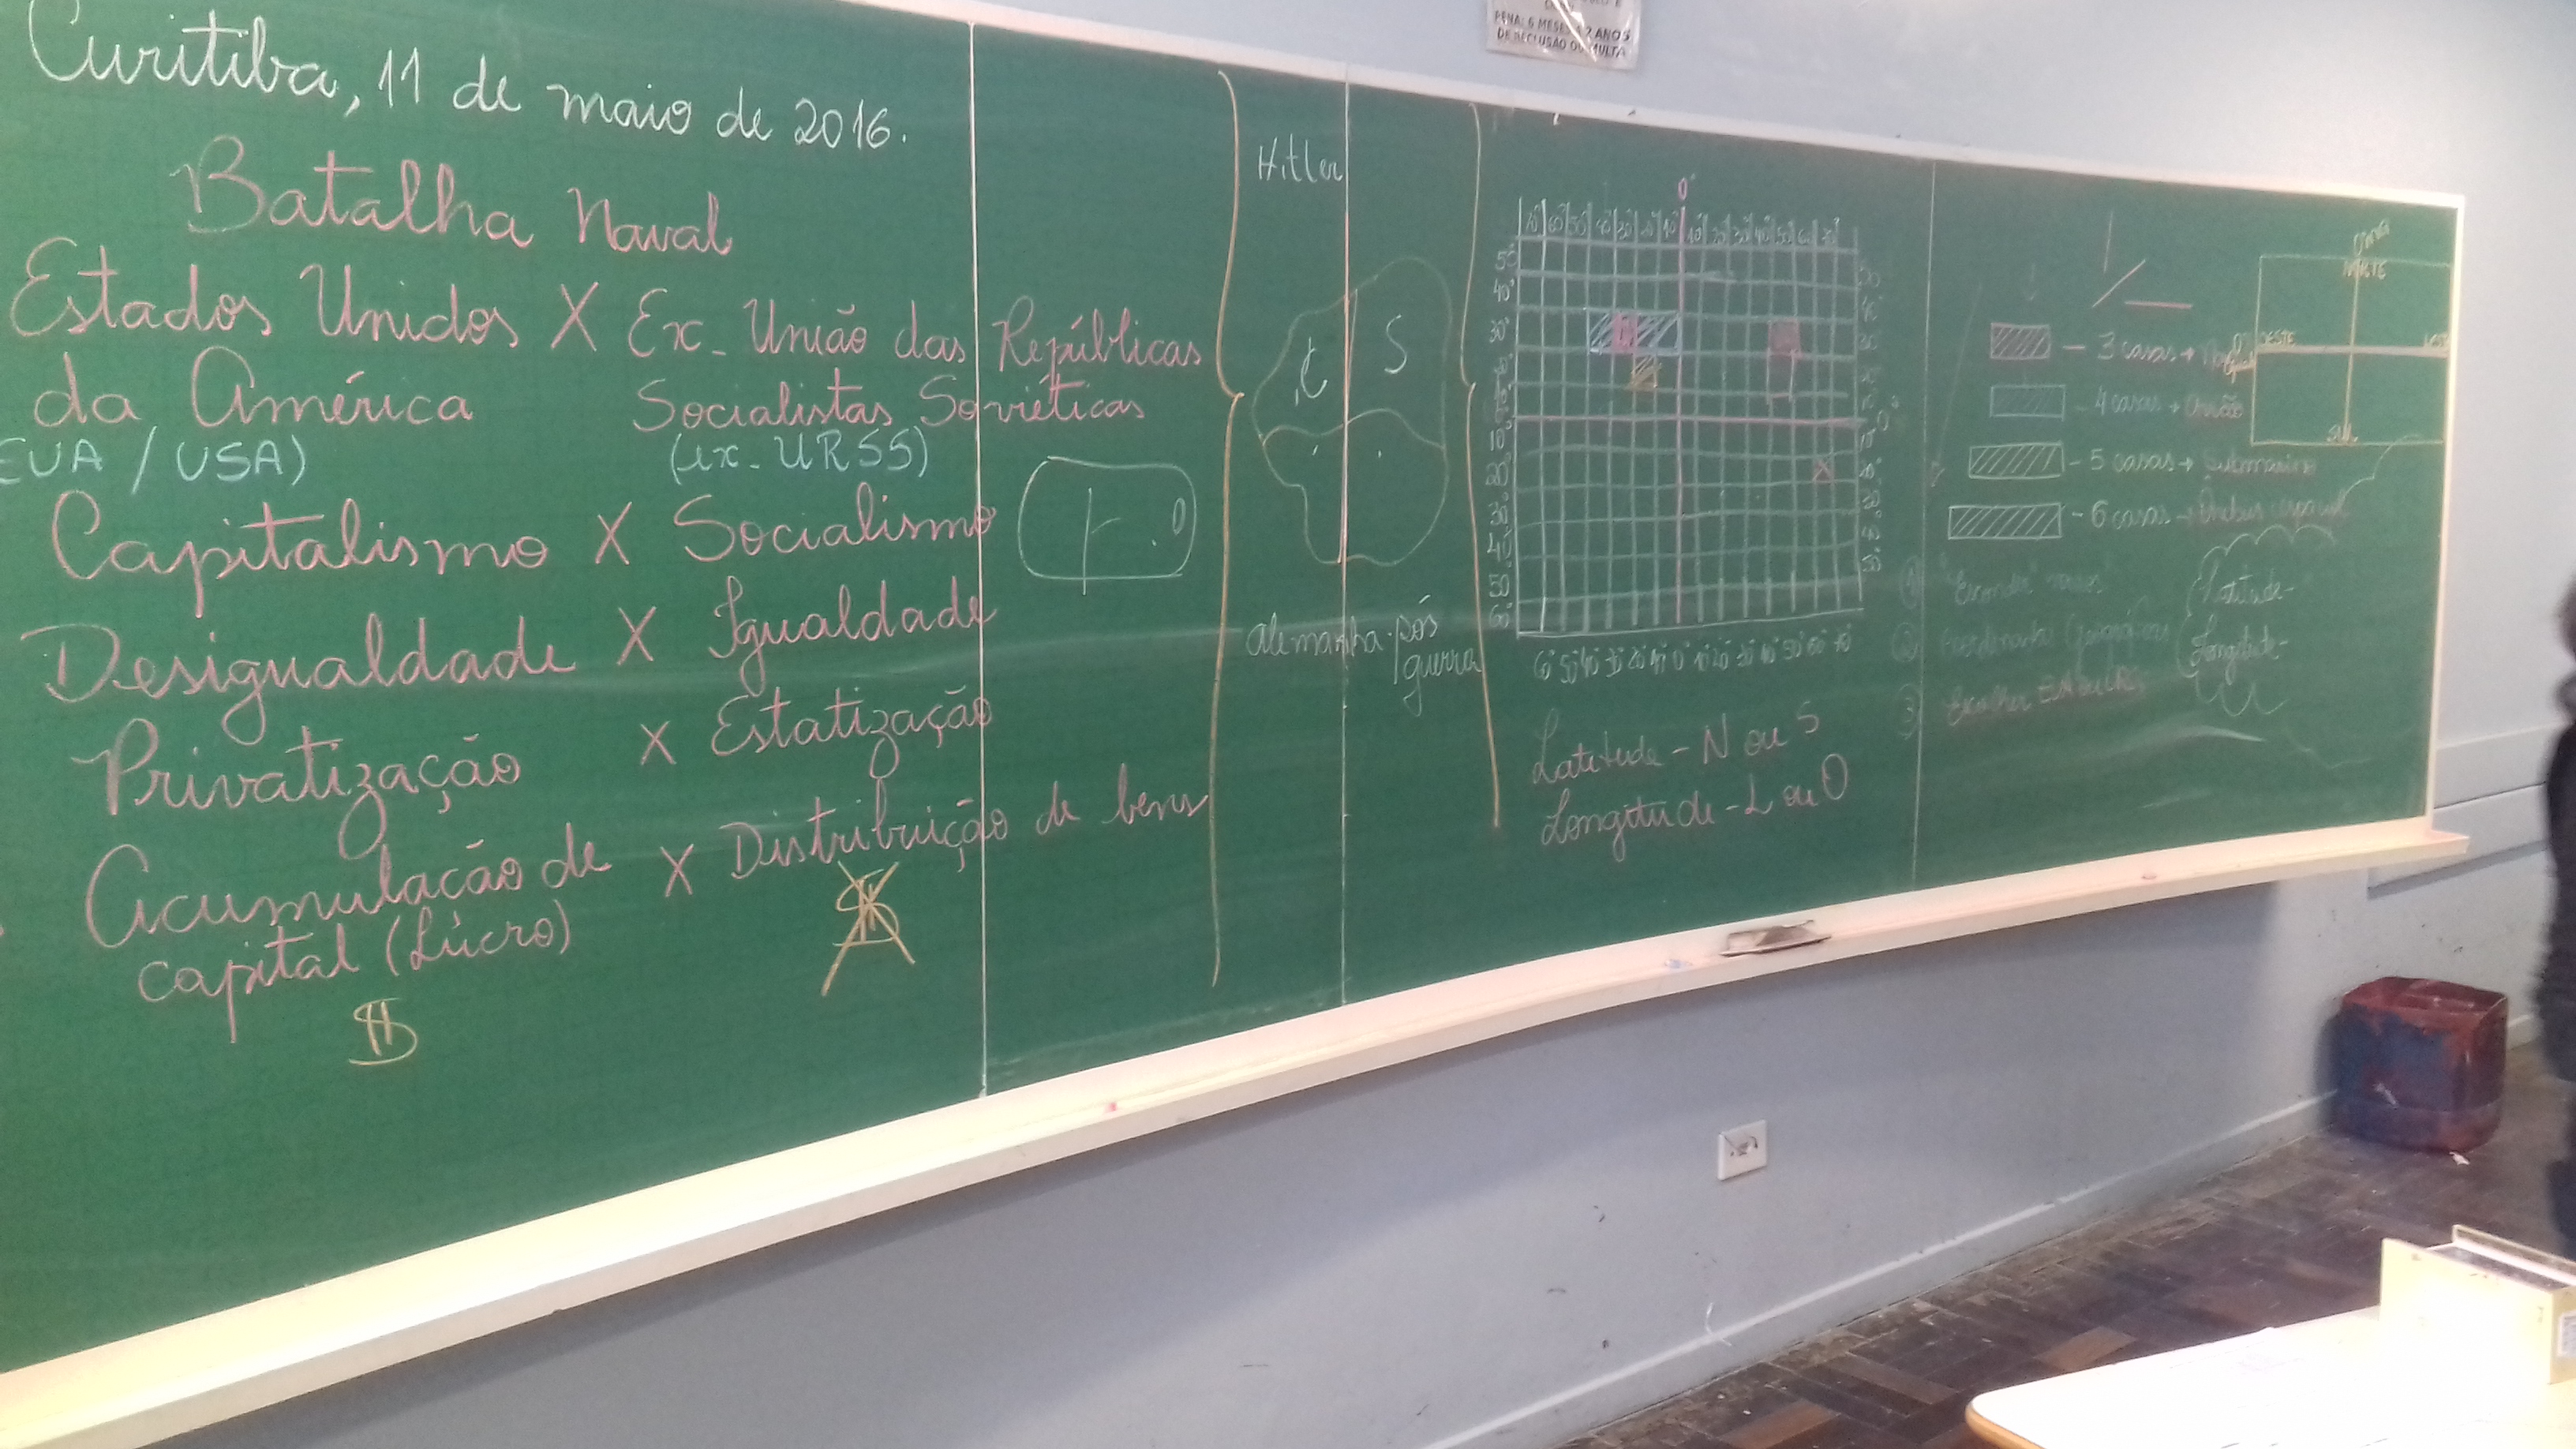 Curitiba, 11 de maio de 2016.
Batalha Naval
Estados Unidos X Ex-União das Repúblicas
da América Socialistas Soviéticas
EUA / USA) (ex-URSS)
Capitalismo X Socialismo
Desigualdade X Igualdade
Privatização X Estatização
Acumulação de X Distribuição de bens
capital (Lucro) $
$
Hitler
C S
Alemanha pós
guerra
0°
70° 60° 50° 40° 30° 20° 10° 10° 20° 30° 40° 50° 60° 70°
60° 50° 40° 30° 20° 10° 0° 10° 20° 30° 40° 50° 60° 70°
Latitude - N ou S
Longitude - L ou O
- 3 casas →
- 4 casas → Avião
- 5 casas → Submarino
- 6 casas → Ônibus espacial
① "Esconder" naves
② Coordenadas Geográficas
③ Escolher EUA ou URSS
Latitude-
Longitude-
NORTE
OESTE LESTE
SUL
PENA: 6 MESES A 2 ANOS
DE RECLUSÃO OU MULTA